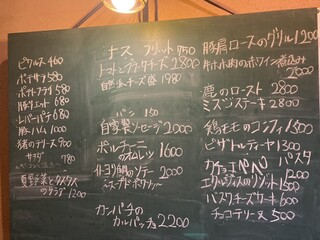 ピクルス 460
ポテサラ 580
ポテトフライ 580
豚リエット 680
レバーパテ 680
豚ハム 1000
猪のテリーヌ 900
サラダ 780
夏野菜とクスクスのサラダ 1200
ナス フリット 750
トマトとブッラータチーズ 2800
自然派チーズ盛 1980
パン 150
自家製ソーセージ 2000
ポルチーニのオムレツ 1600
イトヨリ鯛のソテー 2000
カンパチのカルパッチョ 2200
豚肩ロースのグリル 1200
牛ホホ肉の赤ワイン煮込み 2000
鹿のロースト 2800
ミスジステーキ 2800
鶏ももコンフィ 1500
ピザトルティーヤ 1300
カチョエペペ パスタ 1200
リゾット 1500
バスクチーズケーキ 600
チョコテリーヌ 500